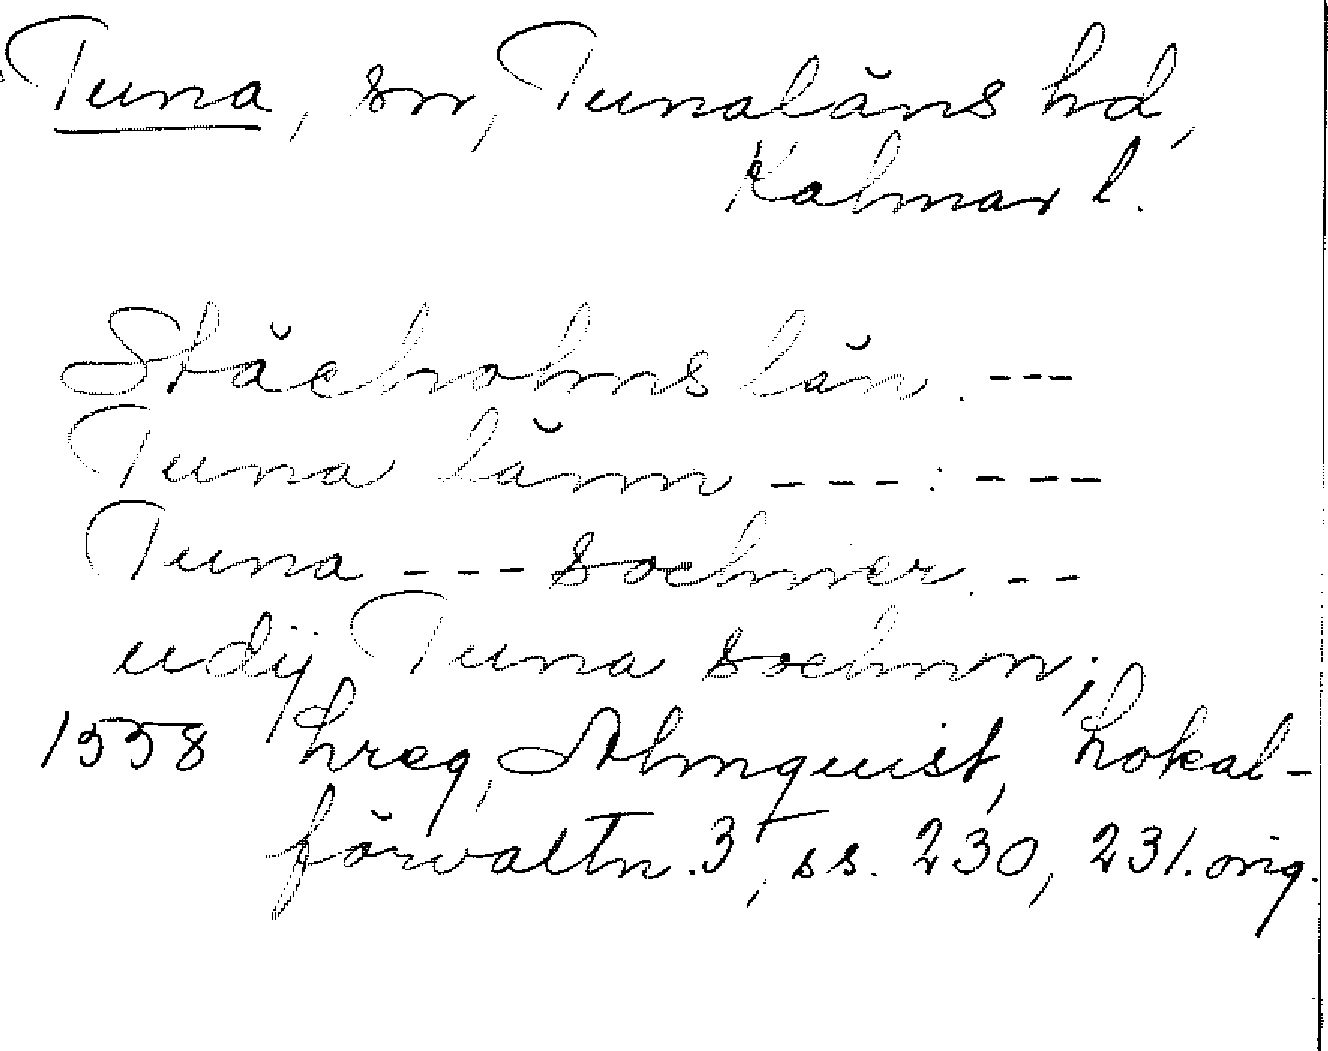 Tuna, sn, Tunaläns hd,
Kalmar l.
Stächolms län. ---
Tuna länn ---:---
Tuna --- sochner. --
udij Tuna sochnn;
1558 hreg, Almquist, Lokal-
förvaltn. 3, ss. 230, 231. orig.